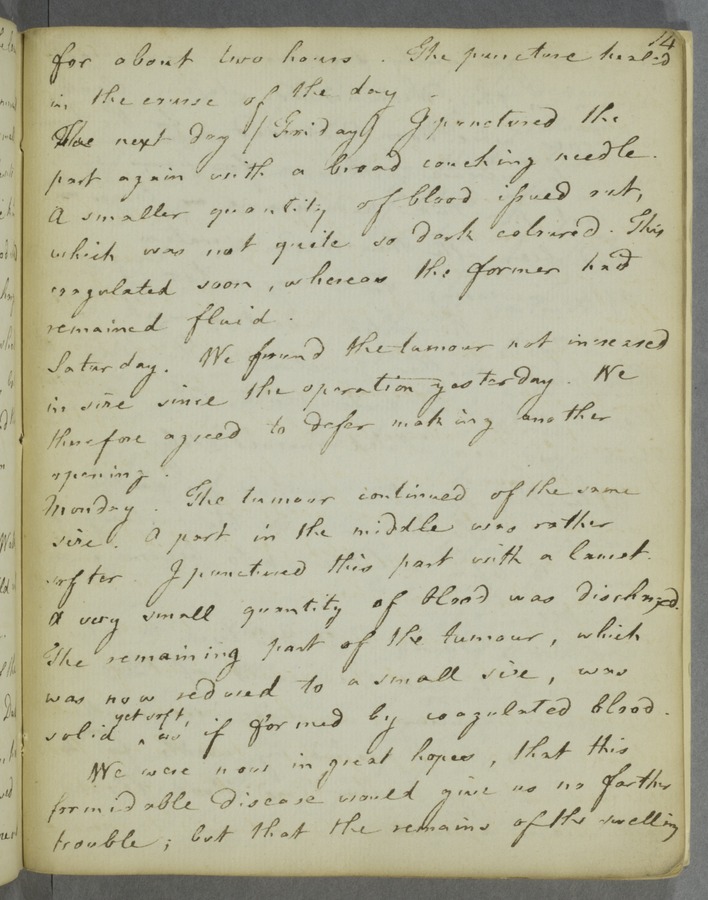 14
for about two hours. The puncture healed
in the course of the day.
The next day (Friday) I punctured the
part again with a broad couching needle.
A smaller quantity of blood issued out,
which was not quite so dark coloured. This
coagulated soon, whereas the former had
remained fluid.
Saturday. We found the tumour not increased
in size since the operation yesterday. We
therefore agreed to defer making another
opening.
Monday. The tumour continued of the same
size. A part in the middle was rather
softer. I punctured this part with a lancet.
A very small quantity of blood was discharged.
The remaining part of the tumour, which
was now reduced to a small size, was
solid yet soft, as if formed by coagulated blood.
We were now in great hopes, that this
formidable disease would give us no farther
trouble; but that the remains of the swelling